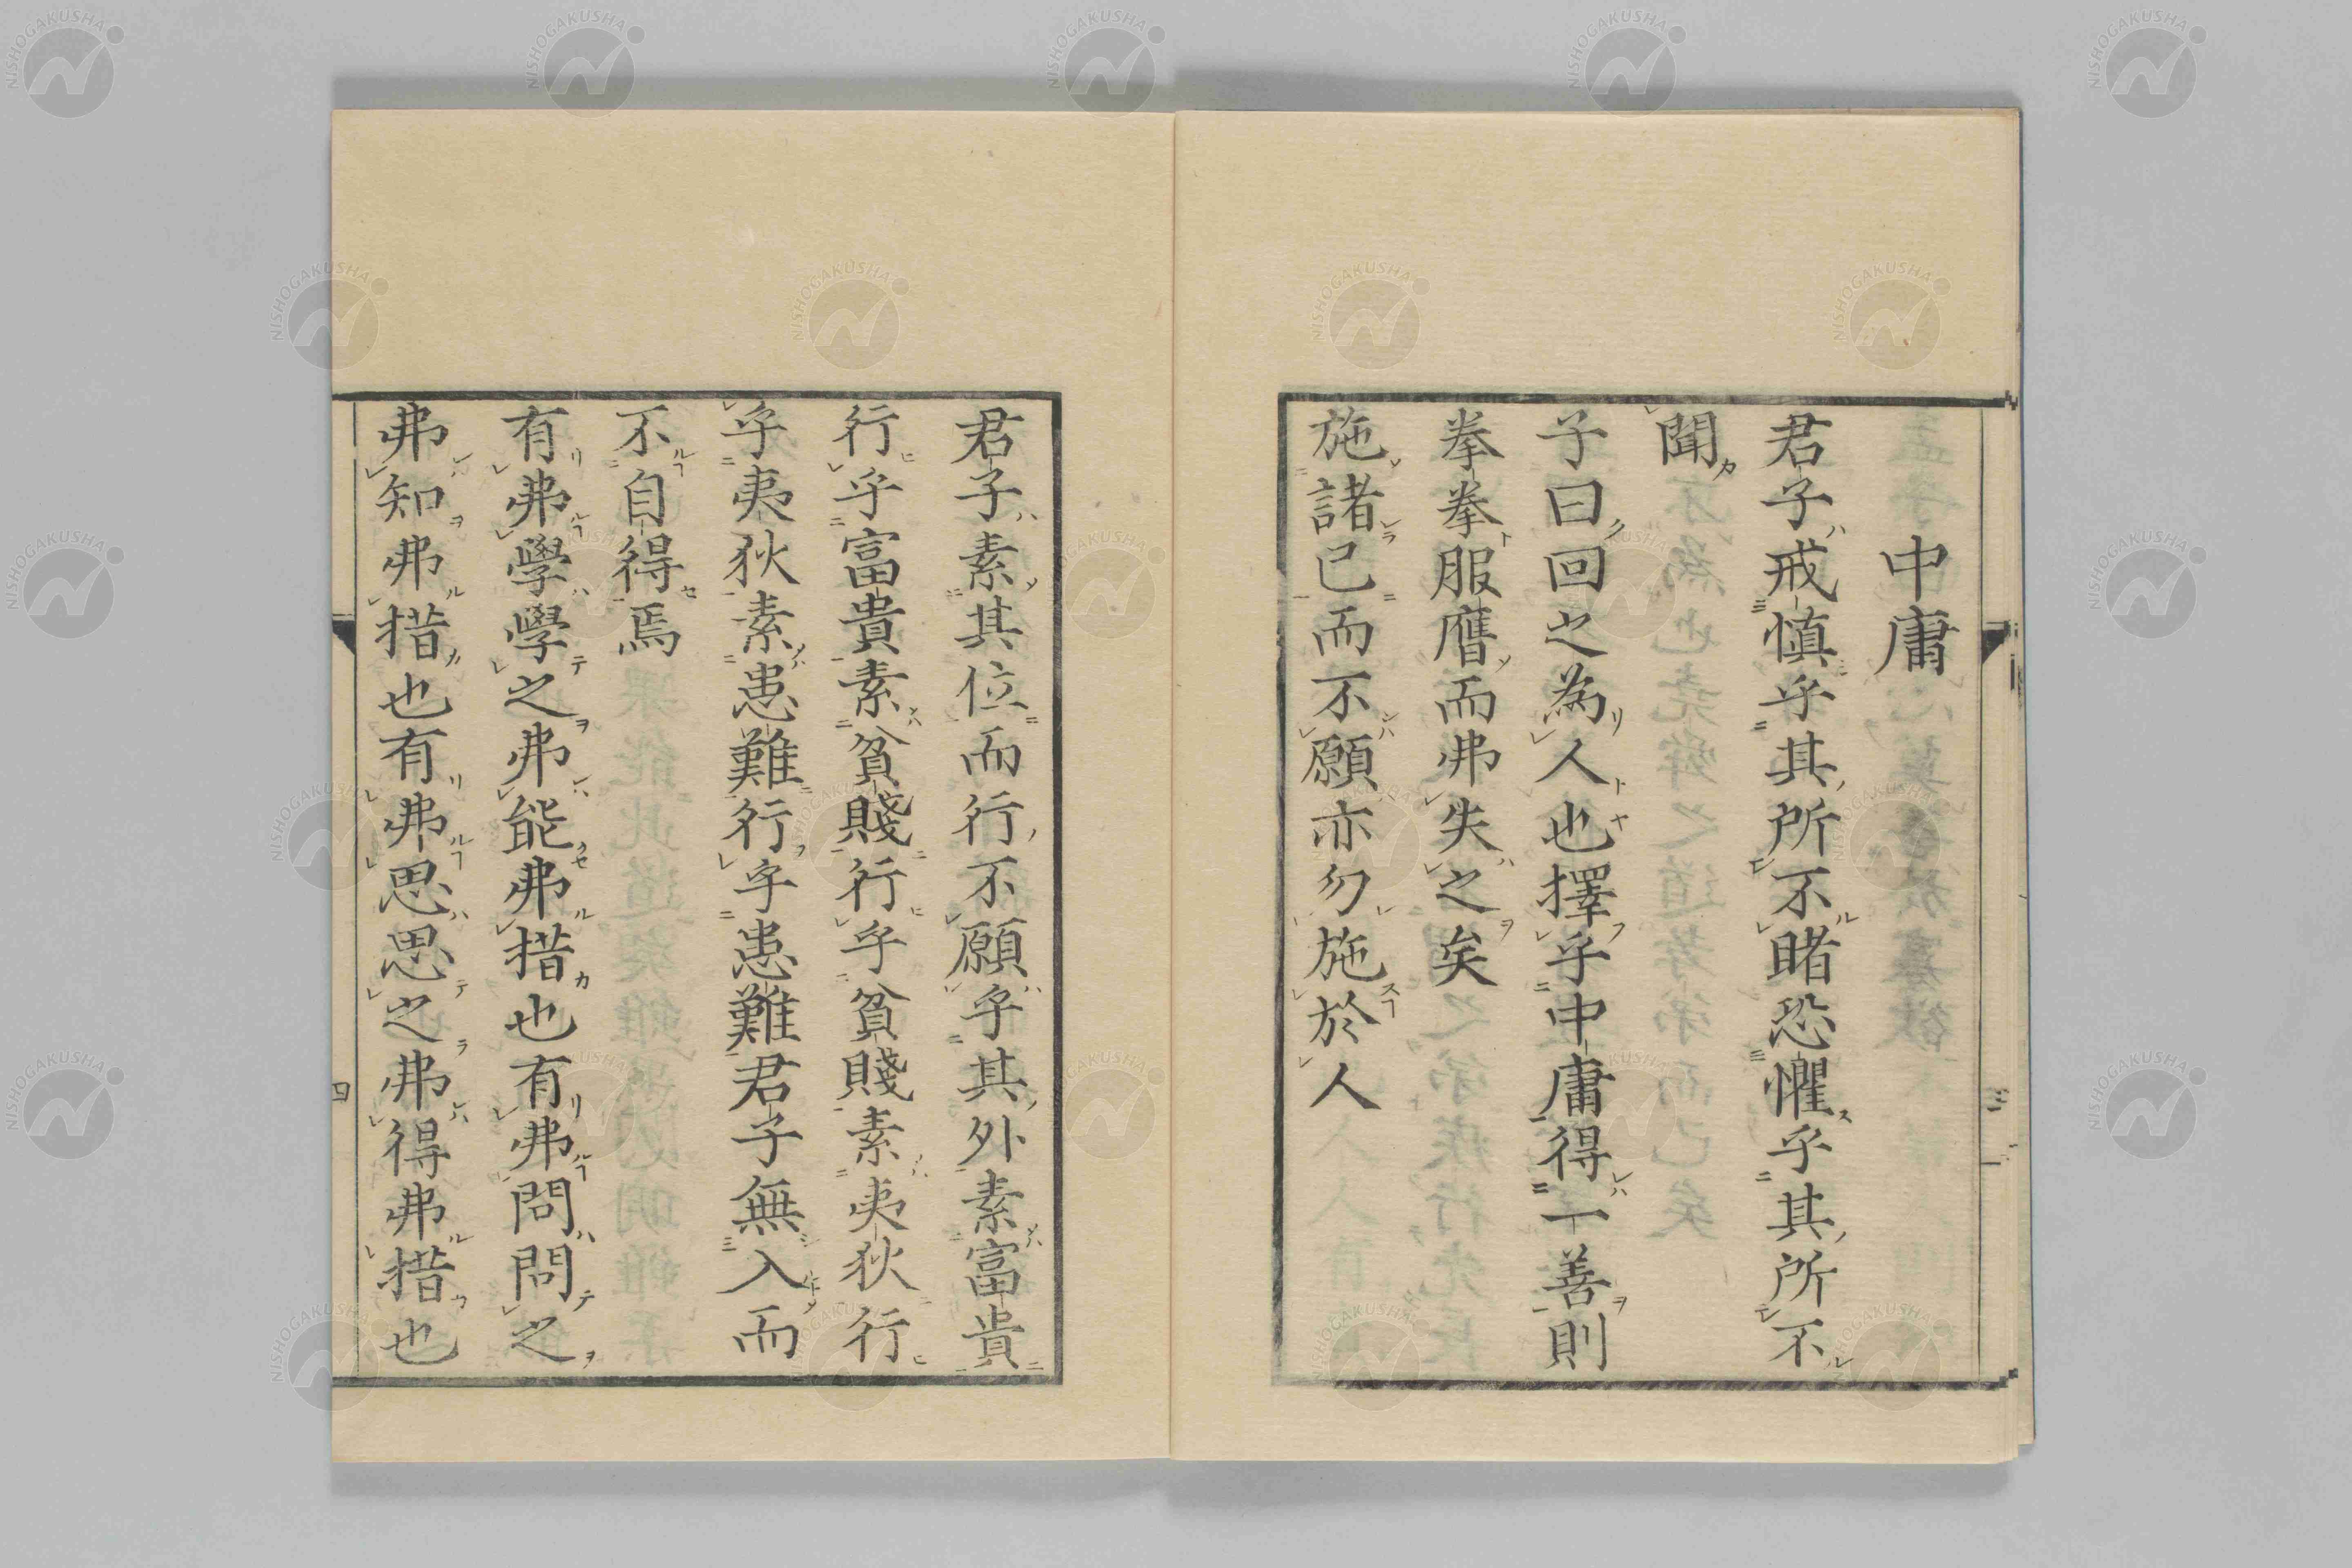 中庸
君子戒慎乎其所不睹恐懼乎其所不
聞
子曰回之為人也擇乎中庸得一善則
拳拳服膺而弗失之矣
施諸己而不願亦勿施於人
君子素其位而行不願乎其外素富貴
行乎富貴素貧賤行乎貧賤素夷狄行
乎夷狄素患難行乎患難君子無入而
不自得焉
有弗學學之弗能弗措也有弗問問之
弗知弗措也有弗思思之弗得弗措也
四
NISHOGAKUSHA